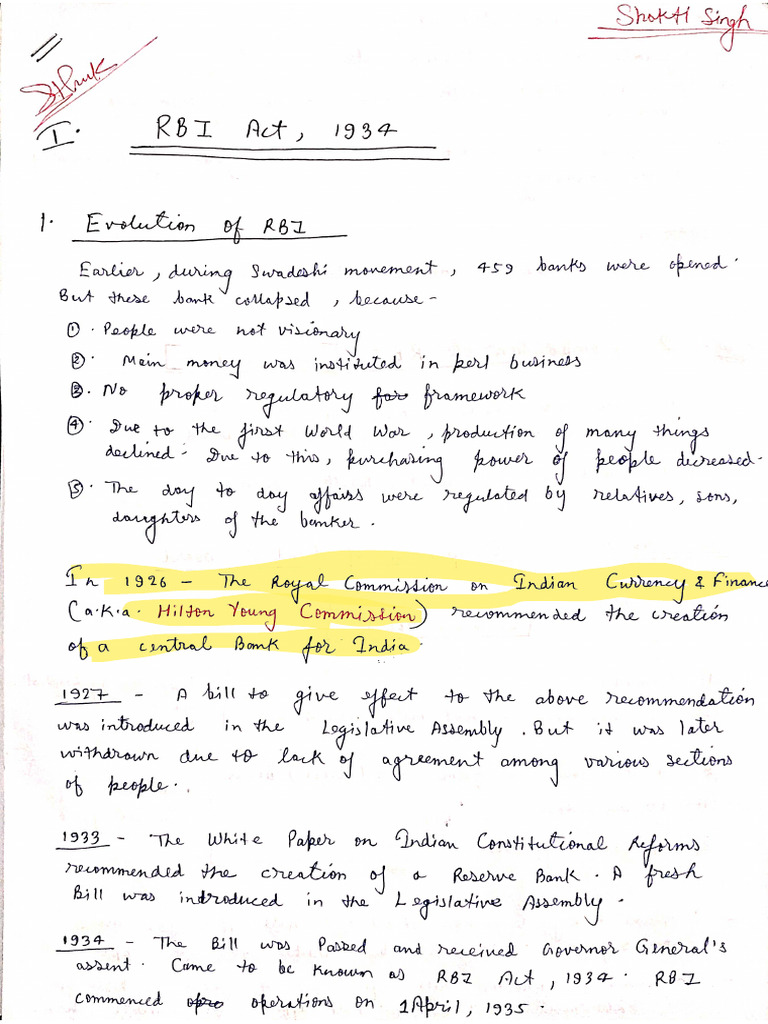 Shakti Singh
I. RBI Act, 1934
1. Evolution of RBI
Earlier, during Swadeshi movement, 459 banks were opened.
But these bank collapsed, because -
①. People were not visionary
②. Main money was instituted in perl business
③. No proper regulatory for framework
④. Due to the first World War, production of many things
declined. Due to this, purchasing power of people decreased.
⑤. The day to day affairs were regulated by relatives, sons,
daughters of the banker.
In 1926 - The Royal Commission on Indian Currency & Finance
(a.k.a. Hilton Young Commission) recommended the creation
of a central Bank for India.
1927 - A bill to give effect to the above recommendation
was introduced in the Legislative Assembly. But it was later
withdrawn due to lack of agreement among various sections
of people.
1933 - The White Paper on Indian Constitutional Reforms
recommended the creation of a Reserve Bank. A fresh
Bill was indroduced in the Legislative Assembly.
1934 - The Bill was Passed and received Governor General's
assent. Came to be known as RBI Act, 1934. RBI
commenced opro operations on 1 April, 1935.